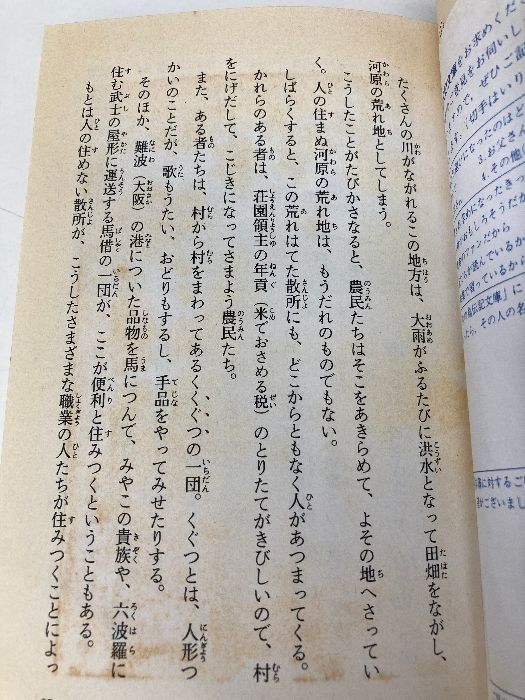 たくさんの川がながれるこの地方は、大雨がふるたびに洪水となって田畑をながし、
河原の荒れ地としてしまう。
こうしたことがたびかさなると、農民たちはそこをあきらめて、よその地へさってい
く。人の住まぬ河原の荒れ地は、もうだれのものでもない。
しばらくすると、この荒れはてた散所にも、どこからともなく人があつまってくる。
かれらのある者は、荘園領主の年貢(米でおさめる税)のとりたてがきびしいので、村
をにげだして、こじきになってさまよう農民たち。
また、ある者たちは、村から村をまわってあるくくぐつの一団。くぐつとは、人形つ
かいのことだが、歌もうたい、おどりもするし、手品をやってみせたりする。
そのほか、難波(大阪)の港についた品物を馬につんで、みやこの貴族や、六波羅に
住む武士の屋形に運送する馬借の一団が、ここが便利と住みつくということもある。
もとは人の住めない散所が、こうしたさまざまな職業の人たちが住みつくことによっ